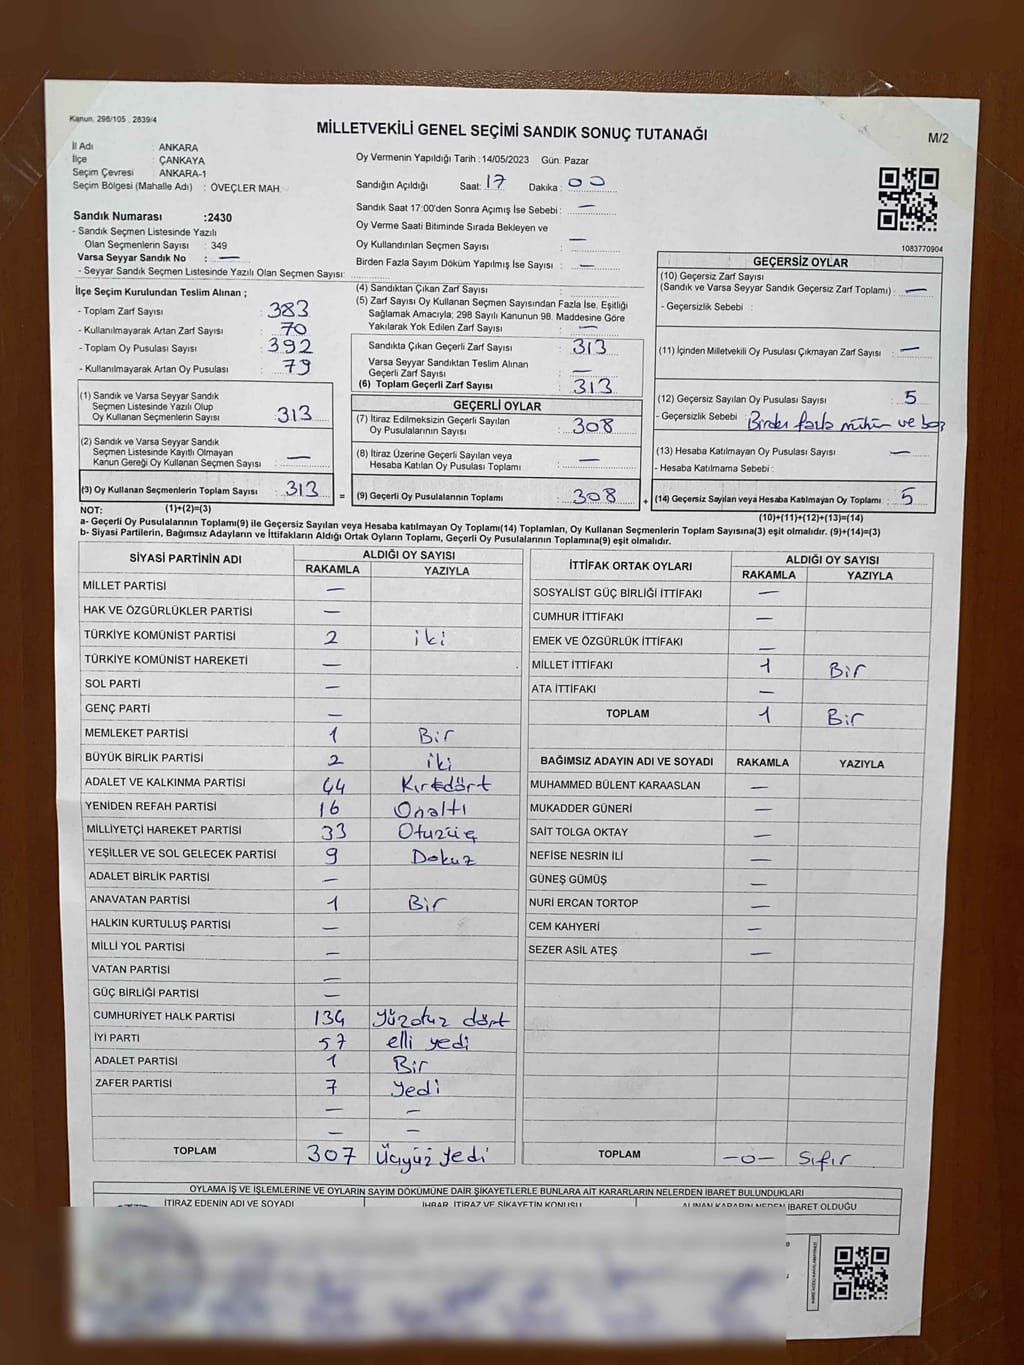 Kanun, 298/105 , 2839/4
MİLLETVEKİLİ GENEL SEÇİMİ SANDIK SONUÇ TUTANAĞI
M/2
İl Adı : ANKARA
İlçe : ÇANKAYA
Seçim Çevresi : ANKARA-1
Seçim Bölgesi (Mahalle Adı) : ÖVEÇLER MAH.
Sandık Numarası :2430
- Sandık Seçmen Listesinde Yazılı
Olan Seçmenlerin Sayısı : 349
Varsa Seyyar Sandık No : —
- Seyyar Sandık Seçmen Listesinde Yazılı Olan Seçmen Sayısı:
Oy Vermenin Yapıldığı Tarih :14/05/2023 Gün: Pazar
Sandığın Açıldığı Saat: 17 Dakika : 00
Sandık Saat 17:00'den Sonra Açımış İse Sebebi : —
Oy Verme Saati Bitiminde Sırada Bekleyen ve
Oy Kullandırılan Seçmen Sayısı : —
Birden Fazla Sayım Döküm Yapılmış İse Sayısı : —
1083770904
İlçe Seçim Kurulundan Teslim Alınan ;
- Toplam Zarf Sayısı : 383
- Kullanılmayarak Artan Zarf Sayısı : 70
- Toplam Oy Pusulası Sayısı : 392
- Kullanılmayarak Artan Oy Pusulası : 79
(1) Sandık ve Varsa Seyyar Sandık
Seçmen Listesinde Yazılı Olup
Oy Kullanan Seçmenlerin Sayısı : 313
(2) Sandık ve Varsa Seyyar Sandık
Seçmen Listesinde Kayıtlı Olmayan
Kanun Gereği Oy Kullanan Seçmen Sayısı : —
(3) Oy Kullanan Seçmenlerin Toplam Sayısı : 313
(1)+(2)=(3)
(4) Sandıktan Çıkan Zarf Sayısı :
(5) Zarf Sayısı Oy Kullanan Seçmen Sayısından Fazla İse, Eşitliği
Sağlamak Amacıyla; 298 Sayılı Kanunun 98. Maddesine Göre
Yakılarak Yok Edilen Zarf Sayısı : —
Sandıkta Çıkan Geçerli Zarf Sayısı : 313
Varsa Seyyar Sandıktan Teslim Alınan
Geçerli Zarf Sayısı : —
(6) Toplam Geçerli Zarf Sayısı : 313
GEÇERLİ OYLAR
(7) İtiraz Edilmeksizin Geçerli Sayılan
Oy Pusulalarının Sayısı : 308
(8) İtiraz Üzerine Geçerli Sayılan veya
Hesaba Katılan Oy Pusulası Toplamı : —
= (9) Geçerli Oy Pusulalarının Toplamı : 308
GEÇERSİZ OYLAR
(10) Geçersiz Zarf Sayısı
(Sandık ve Varsa Seyyar Sandık Geçersiz Zarf Toplamı) : —
- Geçersizlik Sebebi :
(11) İçinden Milletvekili Oy Pusulası Çıkmayan Zarf Sayısı : —
(12) Geçersiz Sayılan Oy Pusulası Sayısı : 5
- Geçersizlik Sebebi : fazla mühür ve boş
(13) Hesaba Katılmayan Oy Pusulası Sayısı : —
- Hesaba Katılmama Sebebi :
+ (14) Geçersiz Sayılan veya Hesaba Katılmayan Oy Toplamı : 5
(10)+(11)+(12)+(13)=(14)
NOT:
a- Geçerli Oy Pusulalarının Toplamı(9) ile Geçersiz Sayılan veya Hesaba katılmayan Oy Toplamı(14) Toplamları, Oy Kullanan Seçmenlerin Toplam Sayısına(3) eşit olmalıdır. (9)+(14)=(3)
b- Siyasi Partilerin, Bağımsız Adayların ve İttifakların Aldığı Ortak Oyların Toplamı, Geçerli Oy Pusulalarının Toplamına(9) eşit olmalıdır.
SİYASİ PARTİNİN ADI ALDIĞI OY SAYISI
RAKAMLA YAZIYLA
MİLLET PARTİSİ —
HAK VE ÖZGÜRLÜKLER PARTİSİ —
TÜRKİYE KOMÜNİST PARTİSİ 2 iki
TÜRKİYE KOMÜNİST HAREKETİ —
SOL PARTİ —
GENÇ PARTİ —
MEMLEKET PARTİSİ 1 Bir
BÜYÜK BİRLİK PARTİSİ 2 iki
ADALET VE KALKINMA PARTİSİ 44 Kırkdört
YENİDEN REFAH PARTİSİ 16 Onaltı
MİLLİYETÇİ HAREKET PARTİSİ 33 Otuzüç
YEŞİLLER VE SOL GELECEK PARTİSİ 9 Dokuz
ADALET BİRLİK PARTİSİ —
ANAVATAN PARTİSİ 1 Bir
HALKIN KURTULUŞ PARTİSİ —
MİLLİ YOL PARTİSİ —
VATAN PARTİSİ —
GÜÇ BİRLİĞİ PARTİSİ —
CUMHURİYET HALK PARTİSİ 134 Yüzotuz dört
İYİ PARTİ 57 elli yedi
ADALET PARTİSİ 1 Bir
ZAFER PARTİSİ 7 Yedi
— —
— —
TOPLAM 307 Üçyüz Yedi
İTTİFAK ORTAK OYLARI ALDIĞI OY SAYISI
RAKAMLA YAZIYLA
SOSYALİST GÜÇ BİRLİĞİ İTTİFAKI —
CUMHUR İTTİFAKI —
EMEK VE ÖZGÜRLÜK İTTİFAKI —
MİLLET İTTİFAKI 1 Bir
ATA İTTİFAKI —
TOPLAM 1 Bir
BAĞIMSIZ ADAYIN ADI VE SOYADI RAKAMLA YAZIYLA
MUHAMMED BÜLENT KARAASLAN —
MUKADDER GÜNERİ —
SAİT TOLGA OKTAY —
NEFİSE NESRİN İLİ —
GÜNEŞ GÜMÜŞ —
NURİ ERCAN TORTOP —
CEM KAHYERİ —
SEZER ASİL ATEŞ —
TOPLAM —0— Sıfır
OYLAMA İŞ VE İŞLEMLERİNE VE OYLARIN SAYIM DÖKÜMÜNE DAİR ŞİKAYETLERLE BUNLARA AİT KARARLARIN NELERDEN İBARET BULUNDUKLARI
İTİRAZ EDENİN ADI VE SOYADI İHBAR, İTİRAZ VE ŞİKAYETİN KONUSU ALINAN KARARIN NEDEN İBARET OLDUĞU